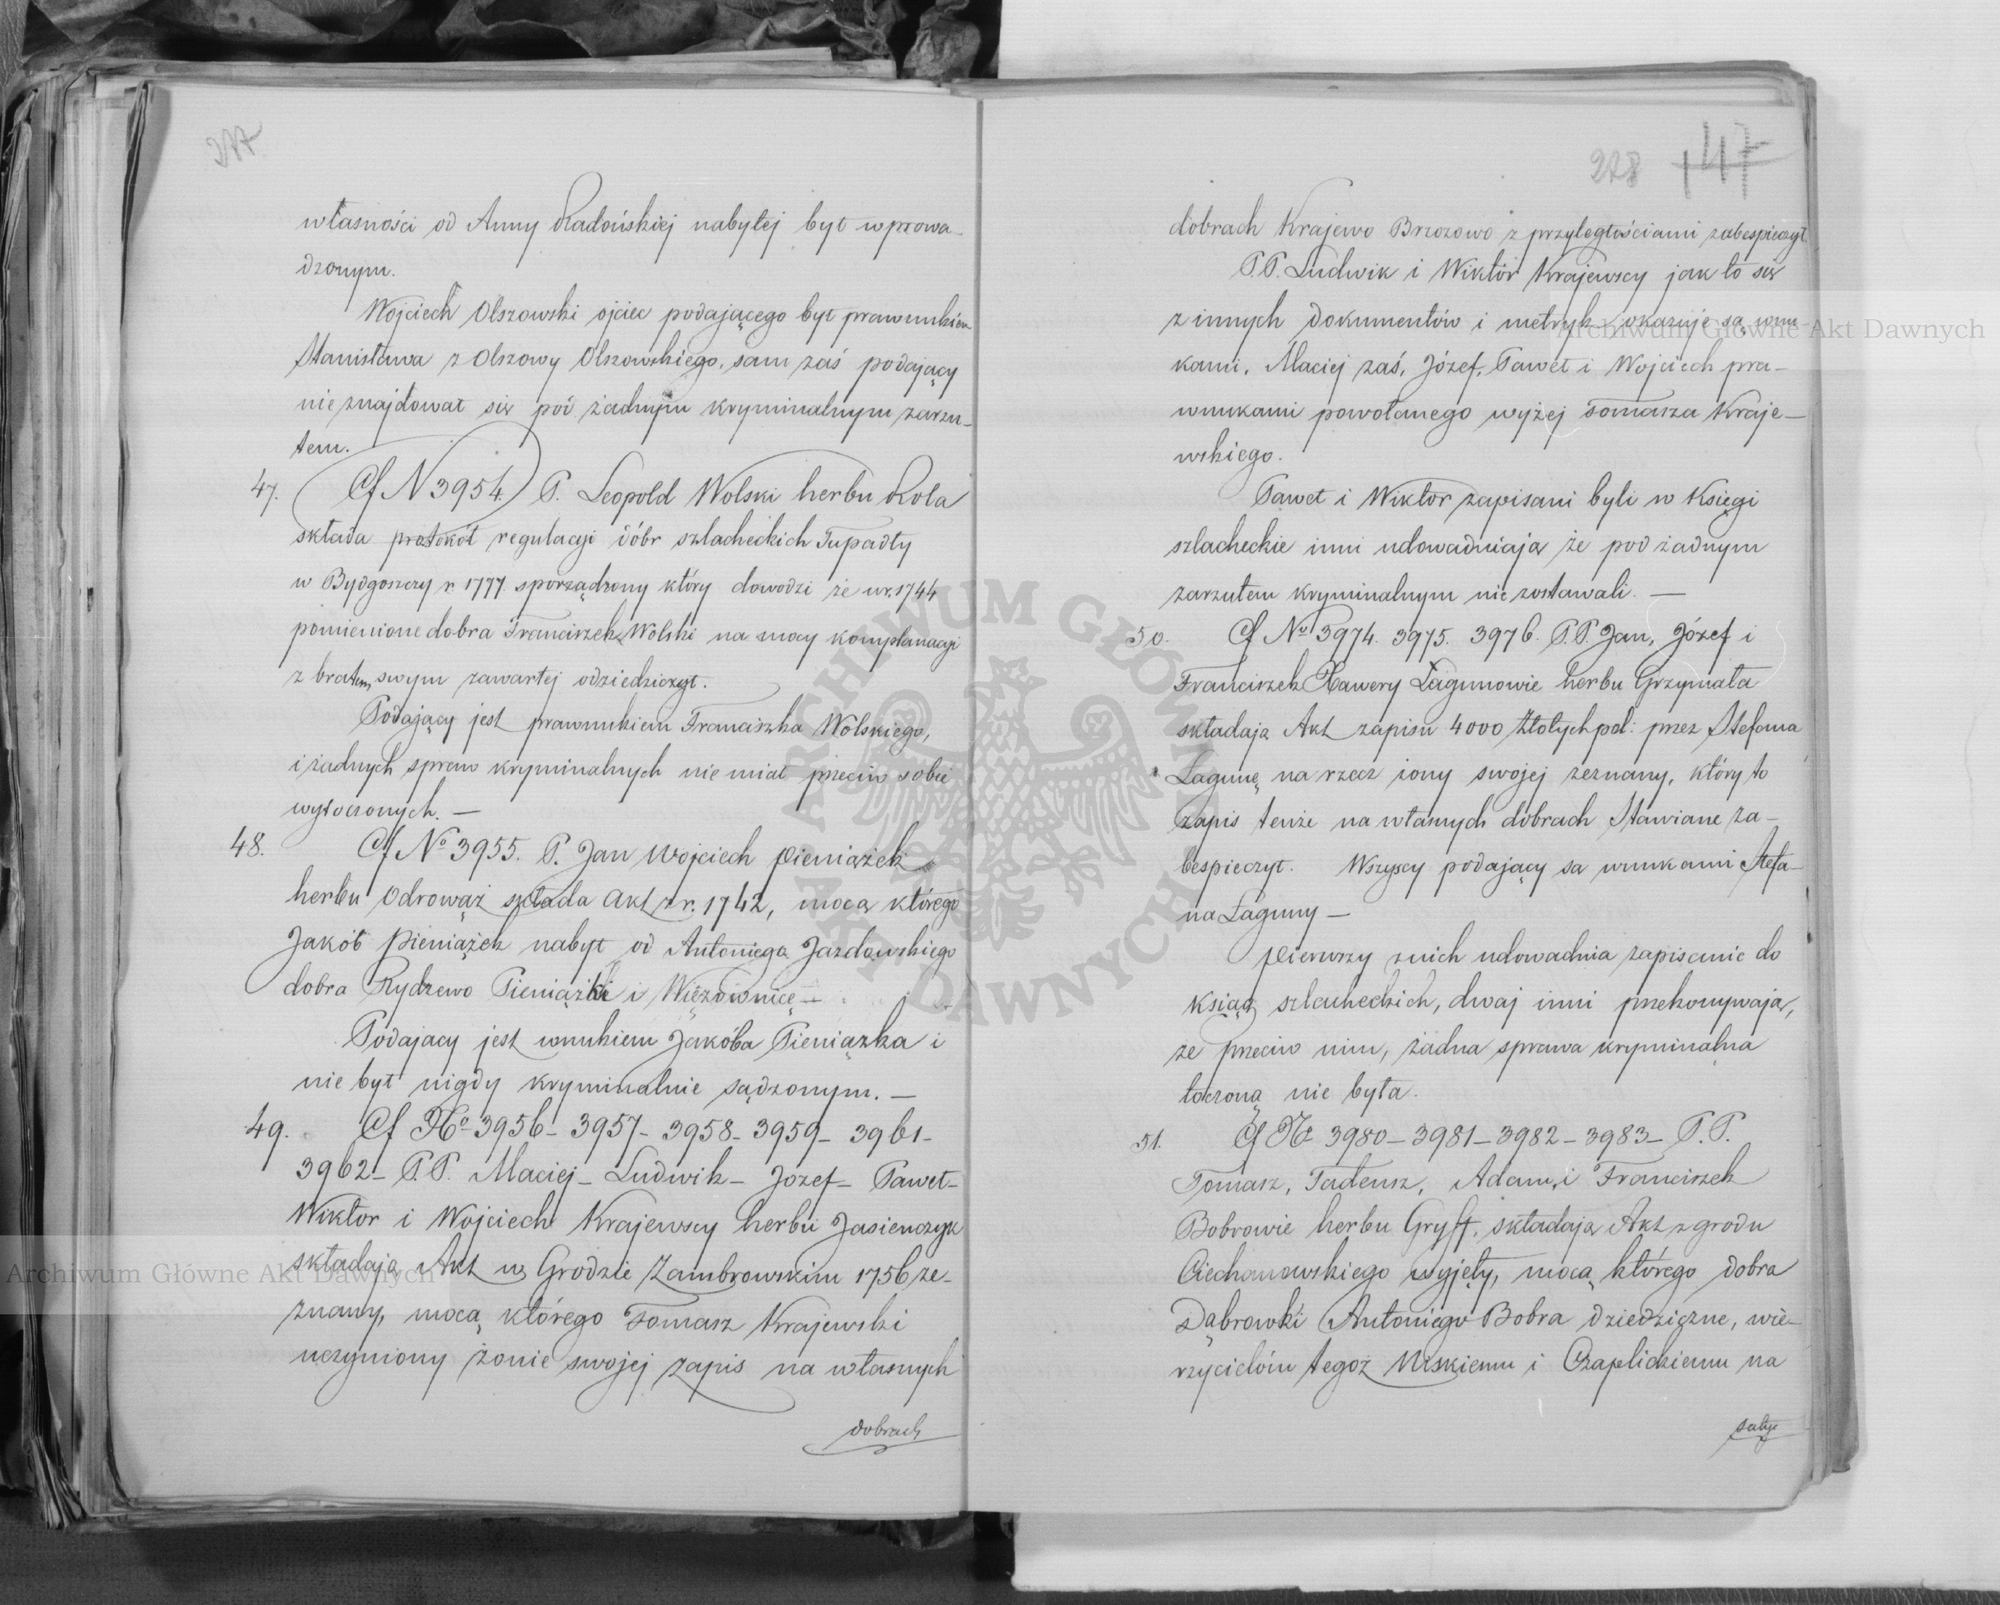 277
własności od Anny Radońskiej nabytej był wprowa-
dzonym.
Wojciech Olszowski ojciec podającego był prawnukiem
Stanisława z Olszowy Olszowskiego, sam zaś podający
nie znajdował się pod żadnym kryminalnym zarzu-
tem.
47. Cf N 3954 P. Leopold Wolski herbu Rola
składa protokół regulacyi dóbr szlacheckich Tupadły
w Bydgoszczy r. 1777 sporządzony który dowodzi że w r. 1744
pomienione dobra Franciszek Wolski na mocy komplanacyi
z bratem swym zawartej odziedziczył.
Podający jest prawnukiem Franciszka Wolskiego,
i żadnych spraw kryminalnych nie miał przeciw sobie
wytoczonych. —
48. Cf No 3955. P. Jan Wojciech Pieniążek
herbu Odrowąż składa Akt z r. 1742, mocą którego
Jakób Pieniążek nabył od Antoniego Jazdowskiego
dobra Rydzewo Pieniążki i Więzownicę —
Podajacy jest wnukiem Jakóba Pieniązka i
nie był nigdy kryminalnie sądzonym. —
49. Cf No 3956 – 3957 – 3958 – 3959 – 3961 –
3962 – P.P. Maciej – Ludwik – Józef – Paweł –
Wiktor i Wojciech Krajewscy herbu Jasieńczyk
składają Akt w Grodzie Zambrowskim 1756 ze-
znany, mocą którego Tomasz Krajewski
uczyniony żonie swojej zapis na własnych
dobrach
278 147
dobrach Krajewo Brzozowo z przyległościami zabespieczył.
P.P. Ludwik i Wiktor Krajewscy jak to się
z innych dokumentów i metryk okazuje są wnu-
kami, Maciej zaś, Józef, Paweł i Wojciech pra-
wnukami powołanego wyżej Tomasza Kraje-
wskiego.
Paweł i Wiktor zapisani byli w Księgi
szlacheckie inni udowadniają że pod żadnym
zarzutem kryminalnym nie zostawali. —
50. Cf No 3974. 3975. 3976. P.P. Jan, Józef i
Franciszek Xawery Łagunowie herbu Grzymała
składają Akt zapisu 4000 złotych pol: przez Stefana
Łagunę na rzecz żony swojej zeznany, który to
zapis tenże na własnych dobrach Stawiane za-
bespieczył. Wszyscy podający są wnukami Stefa-
na Łaguny —
Pierwszy z nich udowadnia zapisanie do
ksiąg szlacheckich, dwaj inni przekonywają,
ze przeciw nim, żadna sprawa kryminalna
toczoną nie była.
51. Cf No 3980 – 3981 – 3982 – 3983 – P.P.
Tomasz, Tadeusz, Adam, i Franciszek
Bobrowie herbu Gryff, składają Akt z grodu
Ciechanowskiego wyjęty, mocą którego dobra
Dąbrowki Antoniego Bobra dziedziczne, wie-
rzycielom tegoż Miskiemu i Czaplickiemu na
satys
ARCHIWUM GŁÓWNE AKT DAWNYCH
Archiwum Główne Akt Dawnych
Archiwum Główne Akt Dawnych